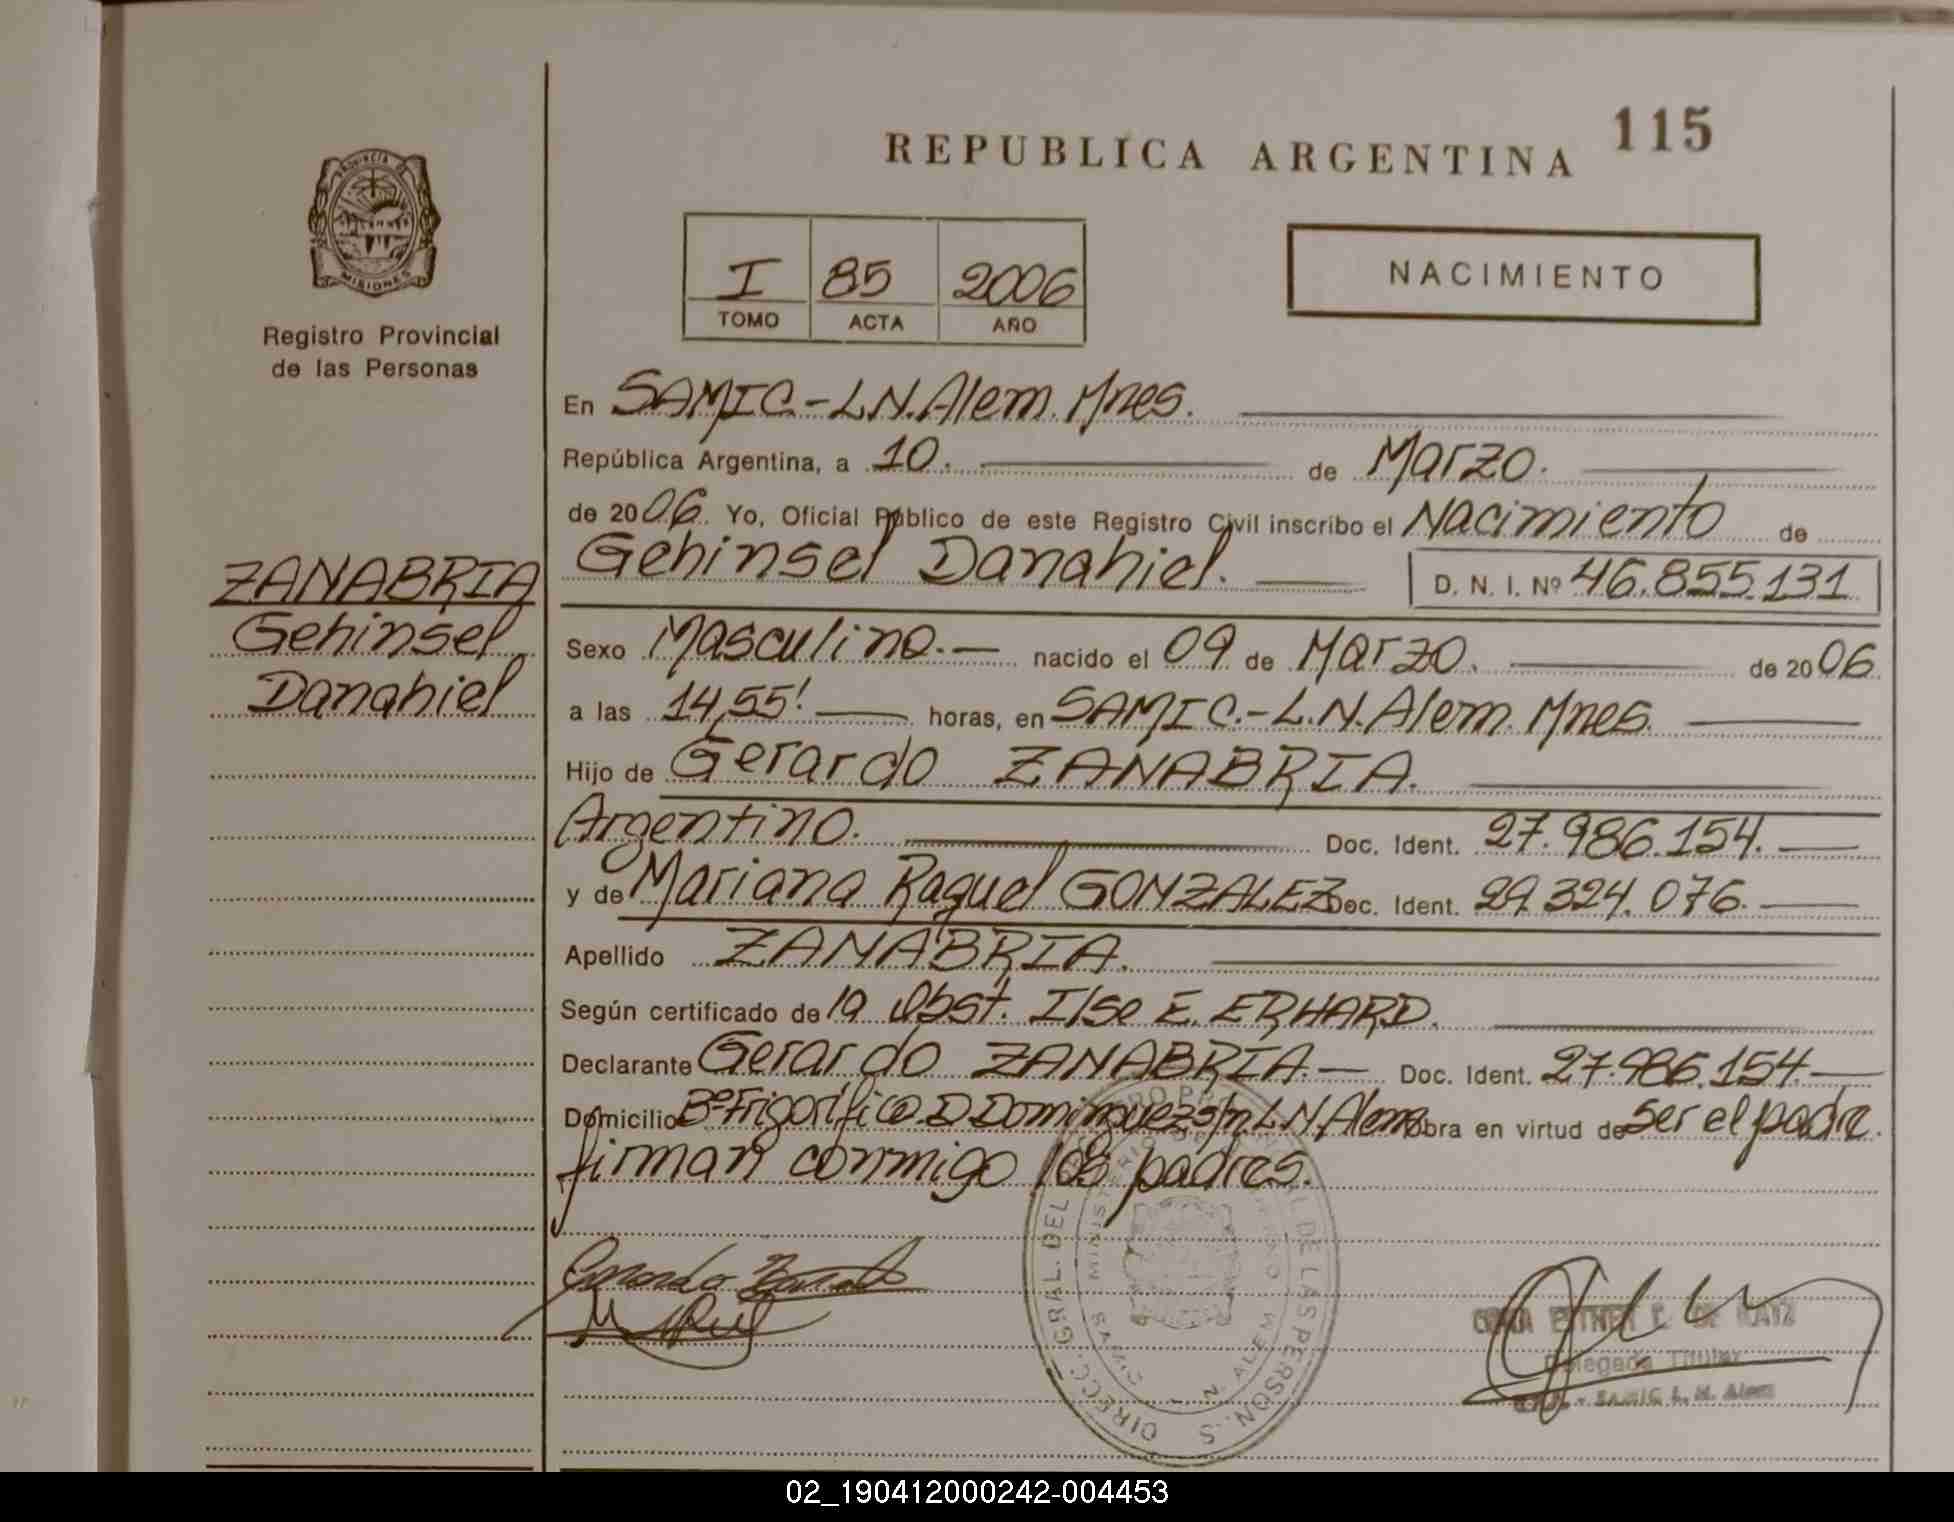 REPUBLICA ARGENTINA 115
PROVINCIA DE
MISIONES
Registro Provincial
de las Personas
I 85 2006
TOMO ACTA AÑO
NACIMIENTO
En SAMIC.-L.N.Alem. Mnes.
República Argentina, a 10. de Marzo.
de 2006. Yo, Oficial Público de este Registro Civil inscribo el Nacimiento de
ZANABRIA
Gehinsel
Danahiel
Gehinsel Danahiel. D. N. I. Nº 46.855.131
Sexo Masculino.— nacido el 09 de Marzo. de 2006
a las 14,55' horas, en SAMIC.-L.N.Alem. Mnes.
Hijo de Gerardo ZANABRIA.
Argentino. Doc. Ident. 27.986.154.
y de Mariana Raquel GONZALEZ Doc. Ident. 29.324.076.
Apellido ZANABRIA.
Según certificado de la Obst. Ilse E. ERHARD.
Declarante Gerardo ZANABRIA.— Doc. Ident. 27.986.154.
Domicilio Bº Frigorífico.D Dominguez s/n.L.N.Alem obra en virtud de ser el padre.
firman conmigo los padres.
DIRECC. GRAL. DEL DE LAS PERSON.S
MINISTERIO DE
SAMIC L. N. ALEM
DE
Delegada Titular
SAMIC L. N. Alem
02_190412000242-004453